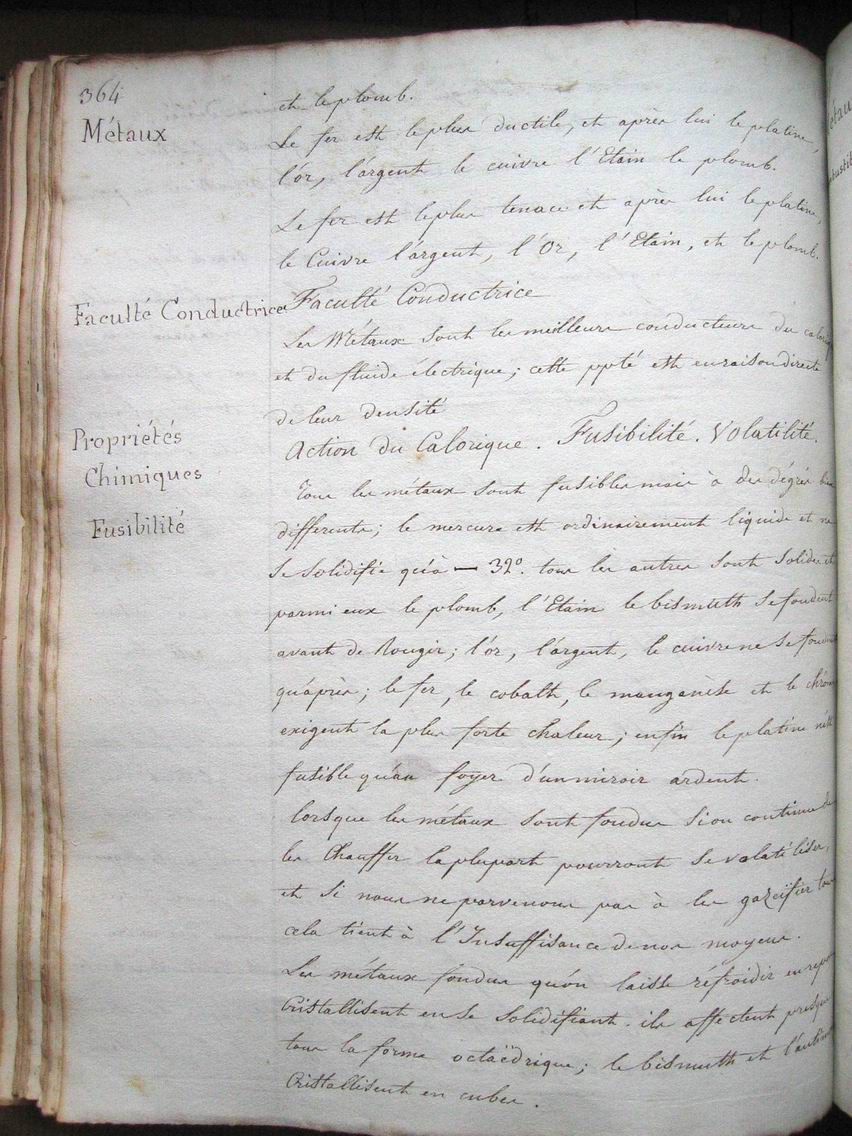 364
Métaux
et le plomb.
Le fer est le plus ductile, et après lui le platine,
l'or, l'argent le cuivre l'Etain le plomb.
Le fer est le plus tenace et après lui le platine,
le Cuivre l'argent, l'Or, l'Etain, et le plomb.
Faculté Conductrice
Faculté Conductrice
Les Métaux sont les meilleurs conducteurs du calorique
et du fluide électrique; cette ppté est en raison directe
de leur densité
Propriétés
Chimiques
Action du Calorique. Fusibilité. Volatilité.
Fusibilité
Tous les métaux sont fusibles mais à des dégrés bien
differents; le mercure est ordinairement liquide et ne
se solidifie qu'à — 32°. tous les autres sont solides et
parmi eux le plomb, l'Etain le bismuth se fondent
avant de Rougir; l'or, l'argent, le cuivre ne se fondent
qu'après; le fer, le cobalt, le manganèse et le chrôme
exigent la plus forte chaleur; enfin le platine n'est
fusible qu'au foyer d'un miroir ardent.
Lorsque les métaux sont fondus si on continue de
les Chauffer la plupart pourront se volatiliser,
et si nous ne parvenons pas à les gazéifier tous
cela tient à l'Insuffisance de nos moyens.
Les métaux fondus qu'on laisse réfroidir en repos
Cristallisent en se solidifiant. ils affectent presque
tous la forme octaëdrique; le bismuth et l'antimoine
Cristallisent en cubes.